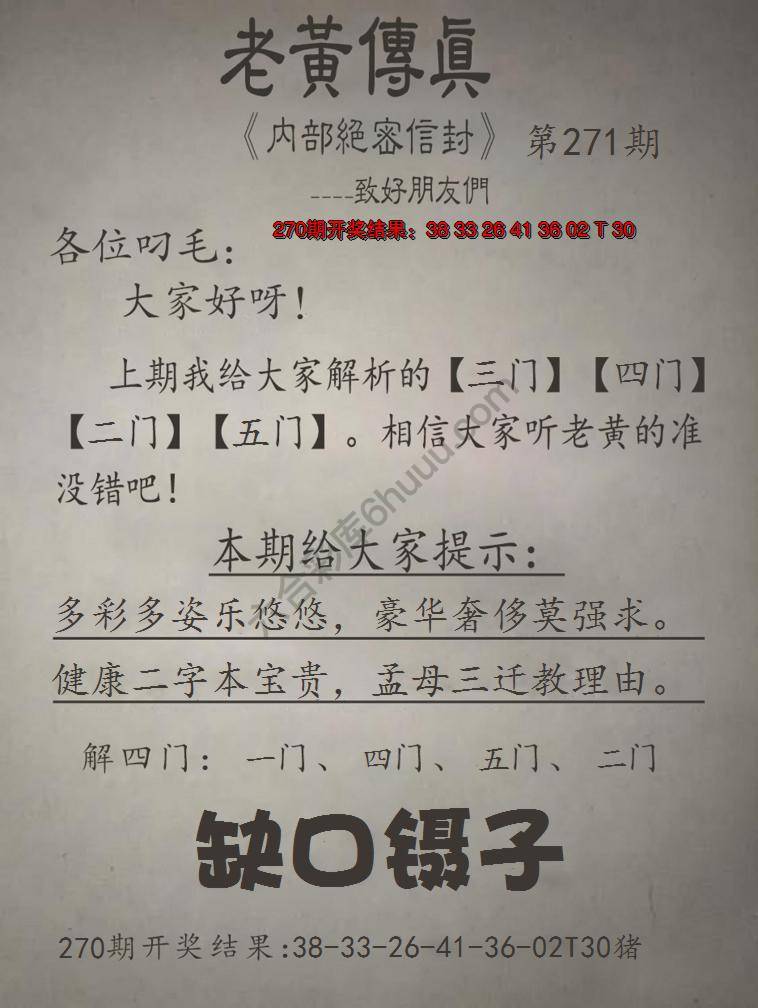 老黃傳眞
《内部絕密信封》 第271期
----致好朋友們
270期开奖结果：38 33 26 41 36 02 T 30
各位叼毛：
大家好呀！
上期我给大家解析的【三门】【四门】
【二门】【五门】。相信大家听老黄的准
没错吧！
本期给大家提示：
多彩多姿乐悠悠，豪华奢侈莫强求。
健康二字本宝贵，孟母三迁教理由。
解四门：一门、四门、五门、二门
缺口镊子
270期开奖结果:38-33-26-41-36-02T30猪
六合彩库6huuu.com